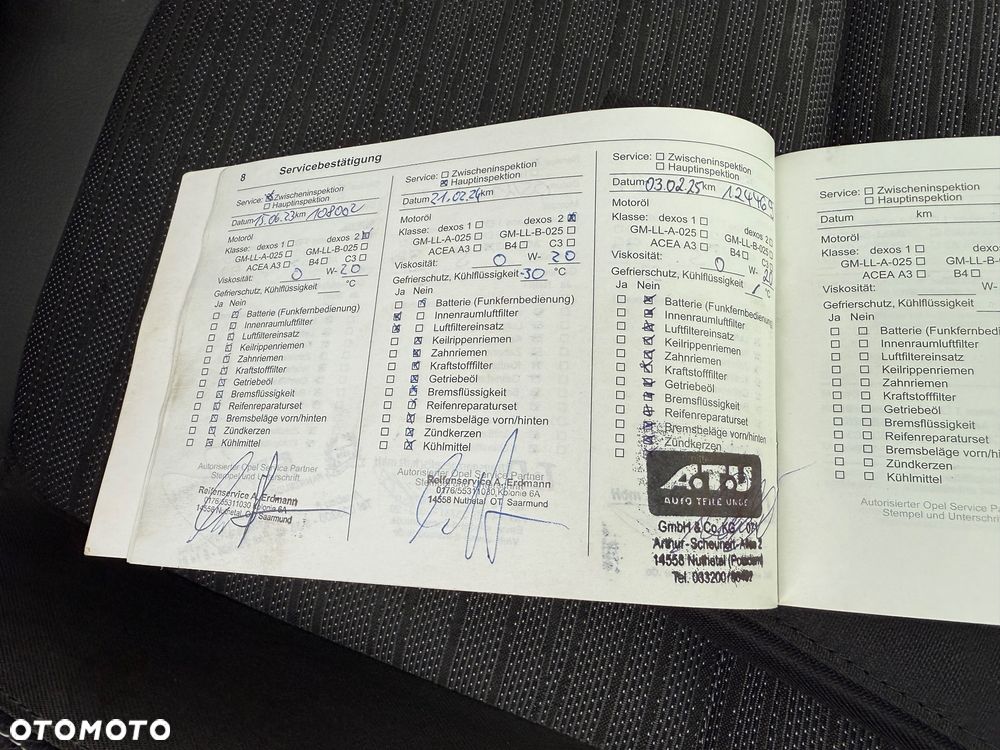 8 Servicebestätigung
Service: Zwischeninspektion
Hauptinspektion
Datum 15.06.23 km 108002
Motoröl
Klasse: dexos 1 dexos 2
GM-LL-A-025 GM-LL-B-025
ACEA A3 B4 C3
Viskosität: 0 W- 20
Gefrierschutz, Kühlflüssigkeit °C
Ja Nein
Batterie (Funkfernbedienung)
Innenraumluftfilter
Luftfiltereinsatz
Keilrippenriemen
Zahnriemen
Kraftstofffilter
Getriebeöl
Bremsflüssigkeit
Reifenreparaturset
Bremsbeläge vorn/hinten
Zündkerzen
Kühlmittel
Autorisierter Opel Service Partner
Stempel und Unterschrift
Reifenservice A. Erdmann
0176/55311030 Kolonie 6A
14558 Nuthetal, OT. Saarmund
Service: Zwischeninspektion
Hauptinspektion
Datum 21.02.24 km
Motoröl
Klasse: dexos 1 dexos 2
GM-LL-A-025 GM-LL-B-025
ACEA A3 B4 C3
Viskosität: 0 W- 20
Gefrierschutz, Kühlflüssigkeit -30 °C
Ja Nein
Batterie (Funkfernbedienung)
Innenraumluftfilter
Luftfiltereinsatz
Keilrippenriemen
Zahnriemen
Kraftstofffilter
Getriebeöl
Bremsflüssigkeit
Reifenreparaturset
Bremsbeläge vorn/hinten
Zündkerzen
Kühlmittel
Autorisierter Opel Service Partner
Stempel und Unterschrift
Reifenservice A. Erdmann
0176/55311030 Kolonie 6A
14558 Nuthetal, OT. Saarmund
Service: Zwischeninspektion
Hauptinspektion
Datum 03.02.25 km
Motoröl
Klasse: dexos 1 dexos 2
GM-LL-A-025 GM-LL-B-025
ACEA A3 B4 C3
Viskosität: 0 W-
Gefrierschutz, Kühlflüssigkeit °C
Ja Nein
Batterie (Funkfernbedienung
Innenraumluftfilter
Luftfiltereinsatz
Keilrippenriemen
Zahnriemen
Kraftstofffilter
Getriebeöl
Bremsflüssigkeit
Reifenreparaturset
Bremsbeläge vorn/hinten
Zündkerzen
A.T.U
AUTO TEILE UNGER
GmbH & Co. KG
14558 Nuthetal
Tel. 033200/
Service: Zwischeninspektion
Hauptinspektion
Datum km
Motoröl
Klasse: dexos 1 dexos
GM-LL-A-025 GM-LL-B-0
ACEA A3 B4
Viskosität: W-
Gefrierschutz, Kühlflüssigkeit
Ja Nein
Batterie (Funkfernbedien
Innenraumluftfilter
Luftfiltereinsatz
Keilrippenriemen
Zahnriemen
Kraftstofffilter
Getriebeöl
Bremsflüssigkeit
Reifenreparaturset
Bremsbeläge vorn/hinten
Zündkerzen
Kühlmittel
Autorisierter Opel Service Pa
Stempel und Unterschrift
OTOMOTO